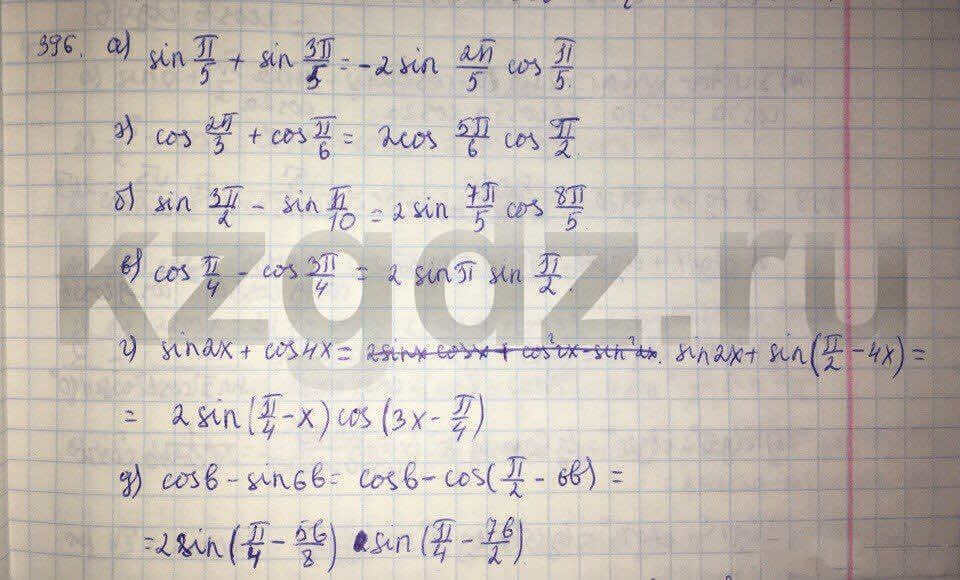 396. а) sin π/5 + sin 3π/5 = -2 sin 2π/5 cos π/5.
г) cos 2π/3 + cos π/6 = 2cos 5π/6 cos π/2.
б) sin 3π/2 - sin π/10 = 2 sin 7π/5 cos 8π/5.
в) cos π/4 - cos 3π/4 = 2 sin π sin π/2.
г) sin2x + cos4x = 2sinx cosx + cos²2x - sin²2x. sin2x + sin(π/2 - 4x) =
= 2 sin(π/4 - x) cos(3x - π/4)
д) cosb - sin6b = cosb - cos(π/2 - 6b) =
= 2 sin(π/4 - 5b/8) sin(π/4 - 7b/2)
kzgdz.ru